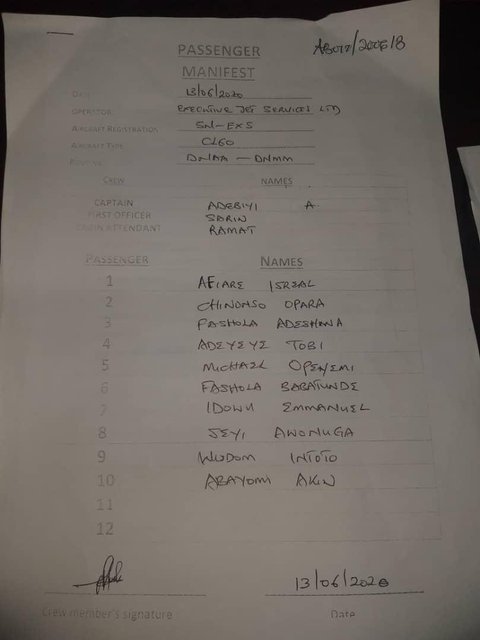 PASSENGER
MANIFEST
DATE 13/06/2020
OPERATOR: EXECUTIVE JET SERVICES LTD
AIRCRAFT REGISTRATION 5N-EXS
AIRCRAFT TYPE CL60
ROUTING DNAA - DNMM
CREW NAMES
CAPTAIN ADEBIYI A.
FIRST OFFICER SARIN
CABIN ATTENDANT RAMAT
PASSENGER NAMES
1 AFIARE ISREAL
2 CHINONSO OPARA
3 FASHOLA ADESHINA
4 ADEYEYE TOBI
5 MICHAEL OPEYEMI
6 FASHOLA BABATUNDE
7 IDOWU EMMANUEL
8 SEYI AWONUGA
9 WUDOM INTOTO
10 ABAYOMI AKIN
11
12
13/06/2020
Crew member's signature Date